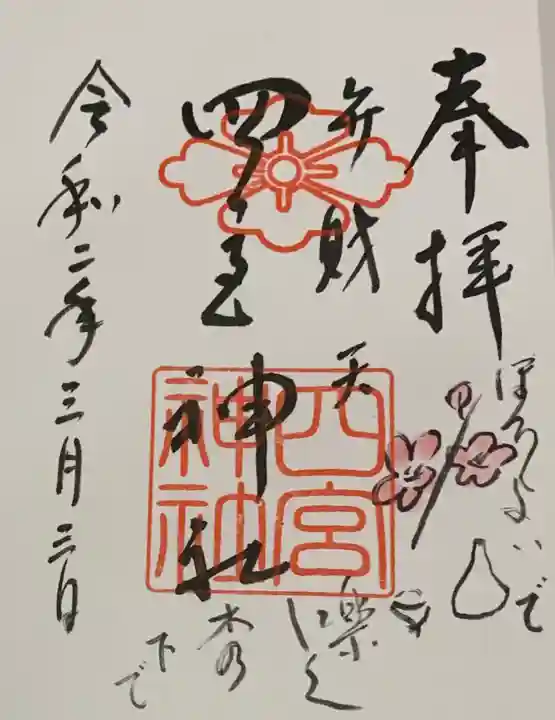 奉拝
ほろよいで
弁財天
楽しく
四宮神社
四宮
神社
下で
令和二年三月三日